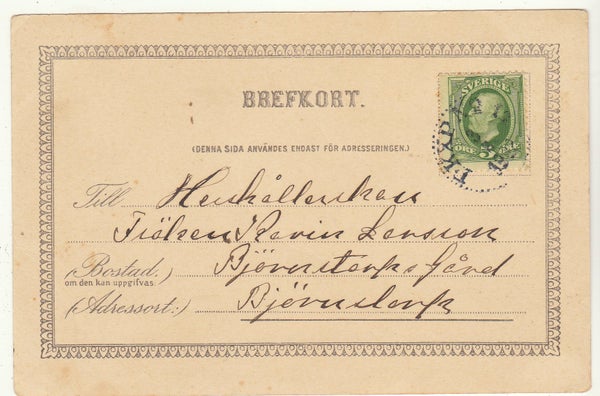 BREFKORT.
SVERIGE
5 ÖRE
(DENNA SIDA ANVÄNDES ENDAST FÖR ADRESSERINGEN.)
Till Hushållerskan
Fröken Karin Larsson
(Bostad.) Björnstorps Gård
om den kan uppgifvas.
(Adressort:) Björnstorp